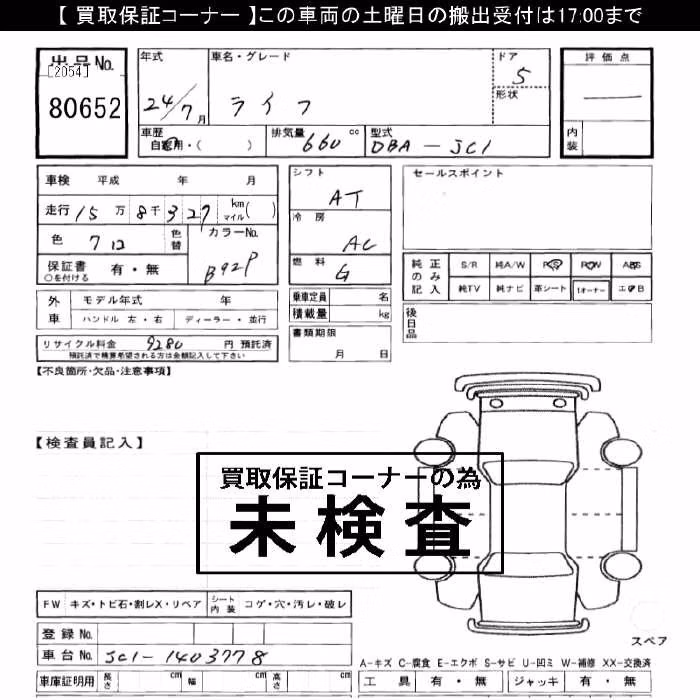 【 買取保証コーナー 】この車両の土曜日の搬出受付は17:00まで
出品No.
[2054]
80652
年式
24/7月
車名・グレード
ライフ
ドア
5
形状
評価点
内装
車歴
自家用・( )
排気量 660 cc
型式 DBA-JC1
車検 平成 年 月
走行 15万8千327 km マイル( )
色 クロ 色替
カラーNo.
B92P
保証書 有・無
○を付ける
外車
モデル年式 年
ハンドル 左・右 ディーラー・並行
リサイクル料金 9280 円 預託済
預託済で精算希望される方は金額記入して下さい
シフト
AT
冷房
AC
燃料
G
乗車定員 名
積載量 kg
書類期限
月 日
セールスポイント
純正のみ記入
S/R 純A/W P/S P/W ABS
純TV 純ナビ 革シート 1オーナー エアB
後日品
【不良箇所・欠品・注意事項】
【検査員記入】
買取保証コーナーの為
未検査
FW キズ・トビ石・割レX・リペア シート内装 コゲ・穴・汚レ・破レ
登録No.
車台No. JC1-1403778
車庫証明用 長さ cm 幅 cm 高さ cm
スペア
A-キズ C-腐食 E-エクボ S-サビ U-凹ミ W-補修 XX-交換済
工具 有・無 ジャッキ 有・無